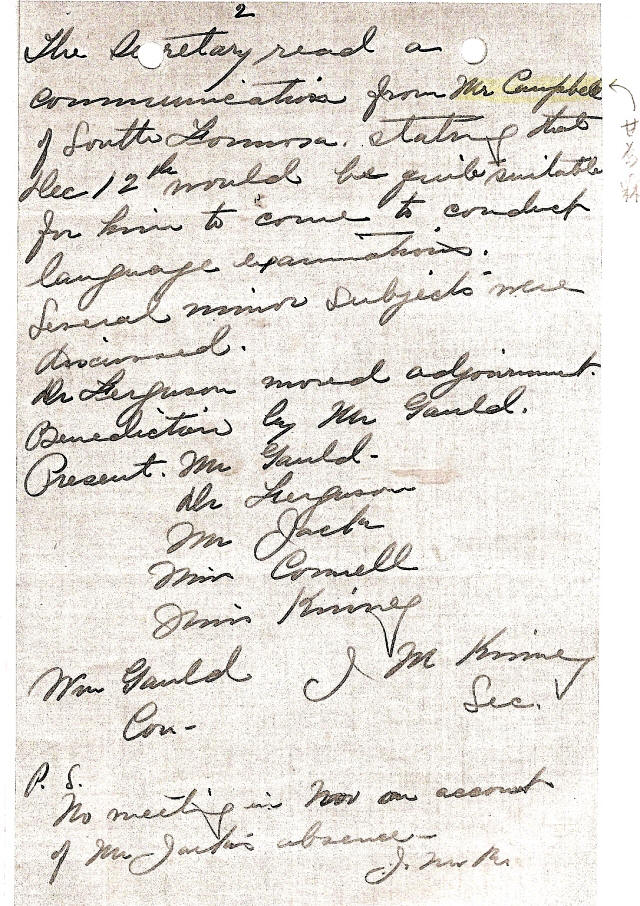 2
The Secretary read a
communication from Mr Campbell
of South Formosa. stating that
Dec 12th would be quite suitable
for him to come to conduct
language examinations.
Several minor subjects were
discussed.
Dr Ferguson moved adjournment.
Benediction by Mr Gauld.
Present. Mr Gauld-
Dr Ferguson
Mr Jack
Miss Connell
Miss Kinney
Wm Gauld J M Kinney
Con- Sec.
P. S.
No meeting in Nov on account
of Mr Jack's absence-